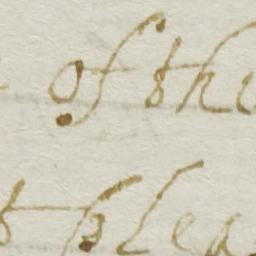 of the
plea